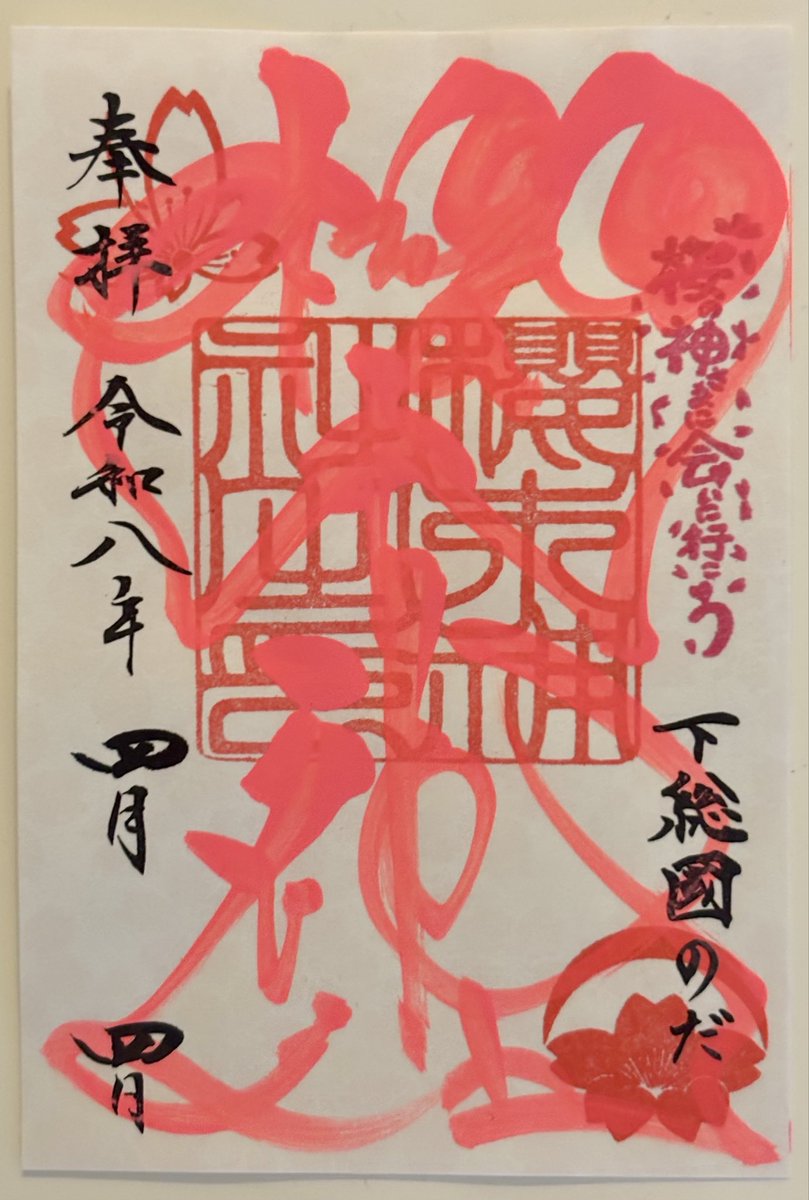 桜の神さまに会いに行こう
下総國のだ
櫻木神社
奉拝 令和八年 四月 四日